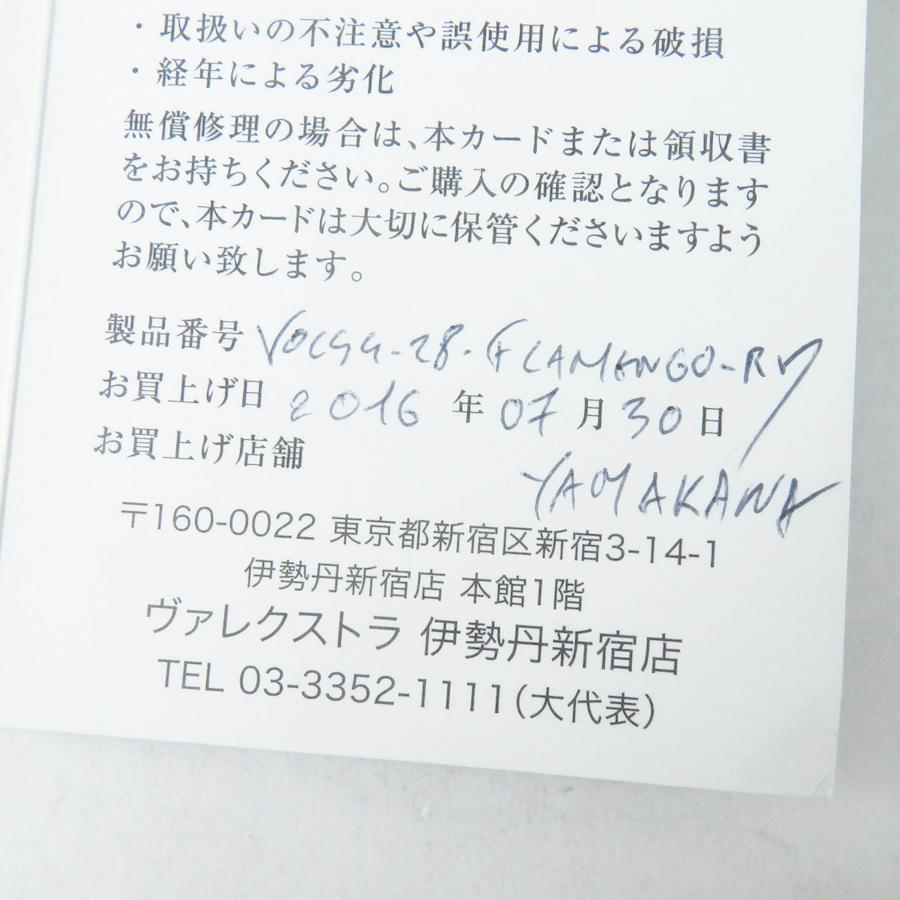 ・取扱いの不注意や誤使用による破損
・経年による劣化
無償修理の場合は、本カードまたは領収書
をお持ちください。ご購入の確認となります
ので、本カードは大切に保管くださいますよう
お願い致します。
製品番号 VOC99-28-FLAMENGO-RV
お買上げ日 2016 年 07 月 30 日
お買上げ店舗 YAMAKAWA
〒160-0022 東京都新宿区新宿3-14-1
伊勢丹新宿店 本館1階
ヴァレクストラ 伊勢丹新宿店
TEL 03-3352-1111(大代表)